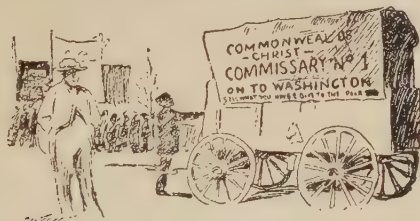 COMMONWEAL OF
- CHRIST -
COMMISSARY Nº 1
ON TO WASHINGTON
SELL WHAT YOU HAVE & GIVE TO THE POOR